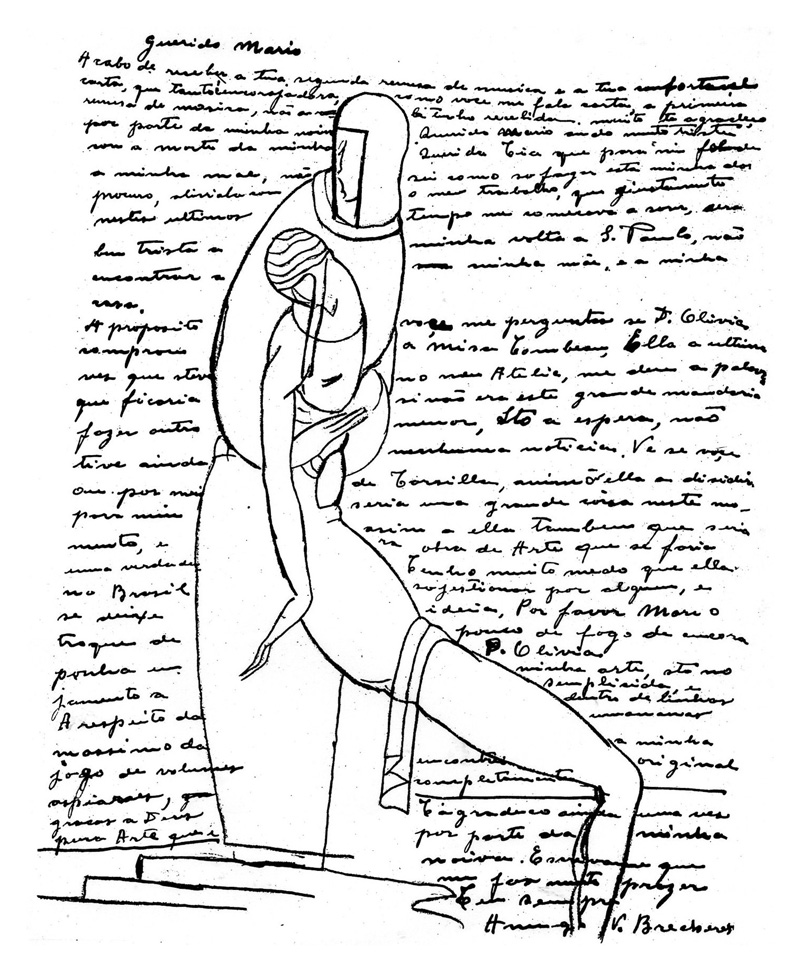 Querido Mario
Acabo de receber a tua segunda remesa de musica e a tua confortavel
carta, que tanto encorajadora, como voce me fala carta, a primeira
remesa de musica, não a tenho recebida. muito te agradeço
por parte da minha noiva Querido Mario ando muito triste
com a morte da minha Querida Tia que para mim foi
a minha mãe, não sei como so fazer esta minha dor
pouco, o meu trabalho, que justamente
nestes ultimos tempo me comecava a sera
bem triste a minha volta a S. Paulo, não
encontrar a minha mãe, e a minha
casa.
A proposito voçe me pergunta se D. Olivia
comprou a misa Tombeau, Ella a ultima
vez que steve no meu Atelie, me deu a palavra
que ficaria si não era este grande
fazer outro menor, Sto a espera, não
tive ainda nenhuma noticia. Ve se voçe
que por mei de Tarsilla, ella a disidir
para mim seria uma grande coisa neste mo-
mento, e a ella tambem que seria
uma verdadeira obra de Arte que se faria
no Brasil Tenho muito medo que ella
se deixe sojestionar por alguem, e
troque de ideia, Por favor Mario
ponha um pouco de fogo de encora
jamento a D. Olivia
A respeito da minha arte, sto no
massimo da semplisidade, e
jogo de volumes dentro de linhas
a minha
graças a Deus encontrei original
pura Arte que é completamente
Tagradeco ainda uma vez
por parte da minha
noiva. Escreva-me que
me fas muito prazer
Teu sempre
Amigo V. Brecheret